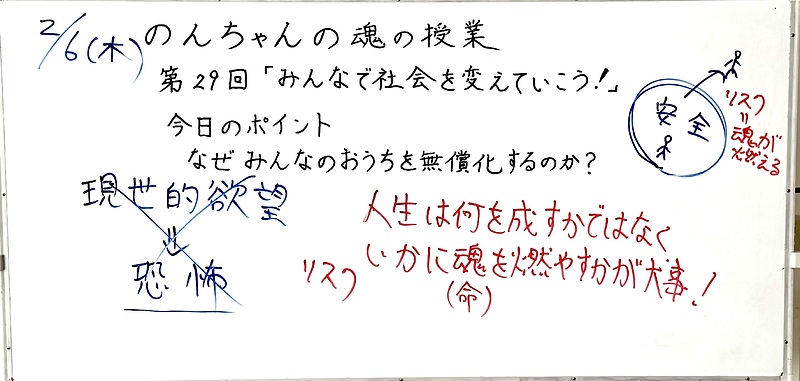 2/6(木)
のんちゃんの魂の授業
第29回「みんなで社会を変えていこう!」
今日のポイント
なぜ みんなのおうちを無償化するのか?
安全
リスク
=
魂が
燃える
現世的欲望
⇓
恐怖
人生は何を成すかではなく
いかに魂を燃やすかが大事!
(命)
リスク